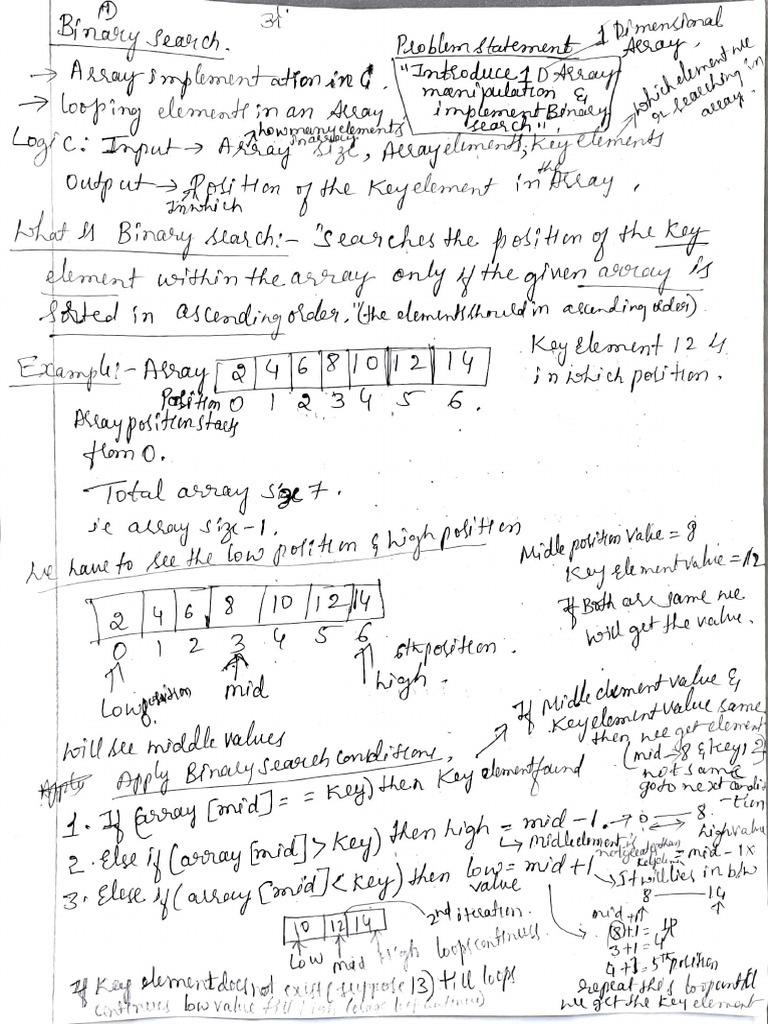 Binary search.
Problem statement
1 Dimensional Array.
→ Array implementation in C.
"Introduce 1 D Array
manipulation &
implement Binary
search".
→ looping elements in an Array
how many elements in array
which element we
or searching in
array.
Logic: Input → Array size, Array elements, Key elements
Output → Position of the Key element in the Array.
In which
What is Binary search:- "searches the position of the key
element within the array only if the given array is
sorted in ascending order." (the elements should in ascending order)
Example:- Array 2 4 6 8 10 12 14
Position 0 1 2 3 4 5 6.
Key Element 12 4
in which position.
Array position starts
from 0.
Total array size 7.
ie array size-1.
We have to see the low position & high position
Middle position value = 8
Key Element value = 12
If Both are same we
will get the value.
2 4 6 8 10 12 14
0 1 2 3 4 5 6
6th position.
Low position
mid
high.
If Middle element value &
Key element value same
then we get element
(mid → 8 & key 12)
not same
go to next condition
will see middle values
Apply Apply Binary search conditions,
1. If (array [mid] == key) then Key element found
2. Else if (array [mid] > key) then high = mid - 1. → 0 — 8
high value
= mid - 1 x
3. Else if (array [mid] < key) then low = mid + 1
value
→ It will lies in b/w
8 — 14
10 12 14
2nd iteration.
Low mid high loop continues.
mid + 1
3+1 = 4
4+1 = 5th position
repeat this loop until
we get the key element
If Key element does not exist (suppose 13) till loops
continues low value till high